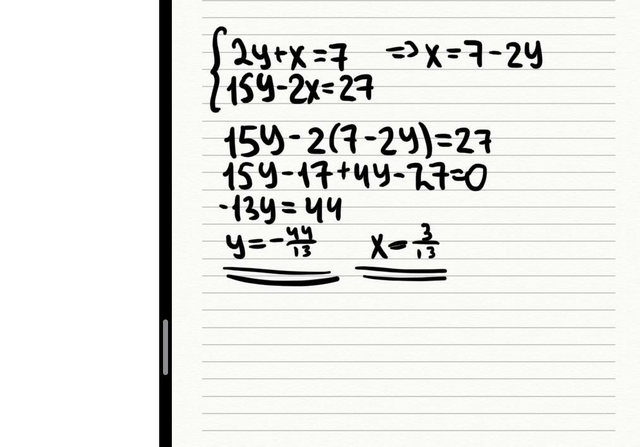 2y+x=7 => x=7-2y
15y-2x=27
15y-2(7-2y)=27
15y-17+4y-27=0
-13y=44
y=-44/13 x=3/13